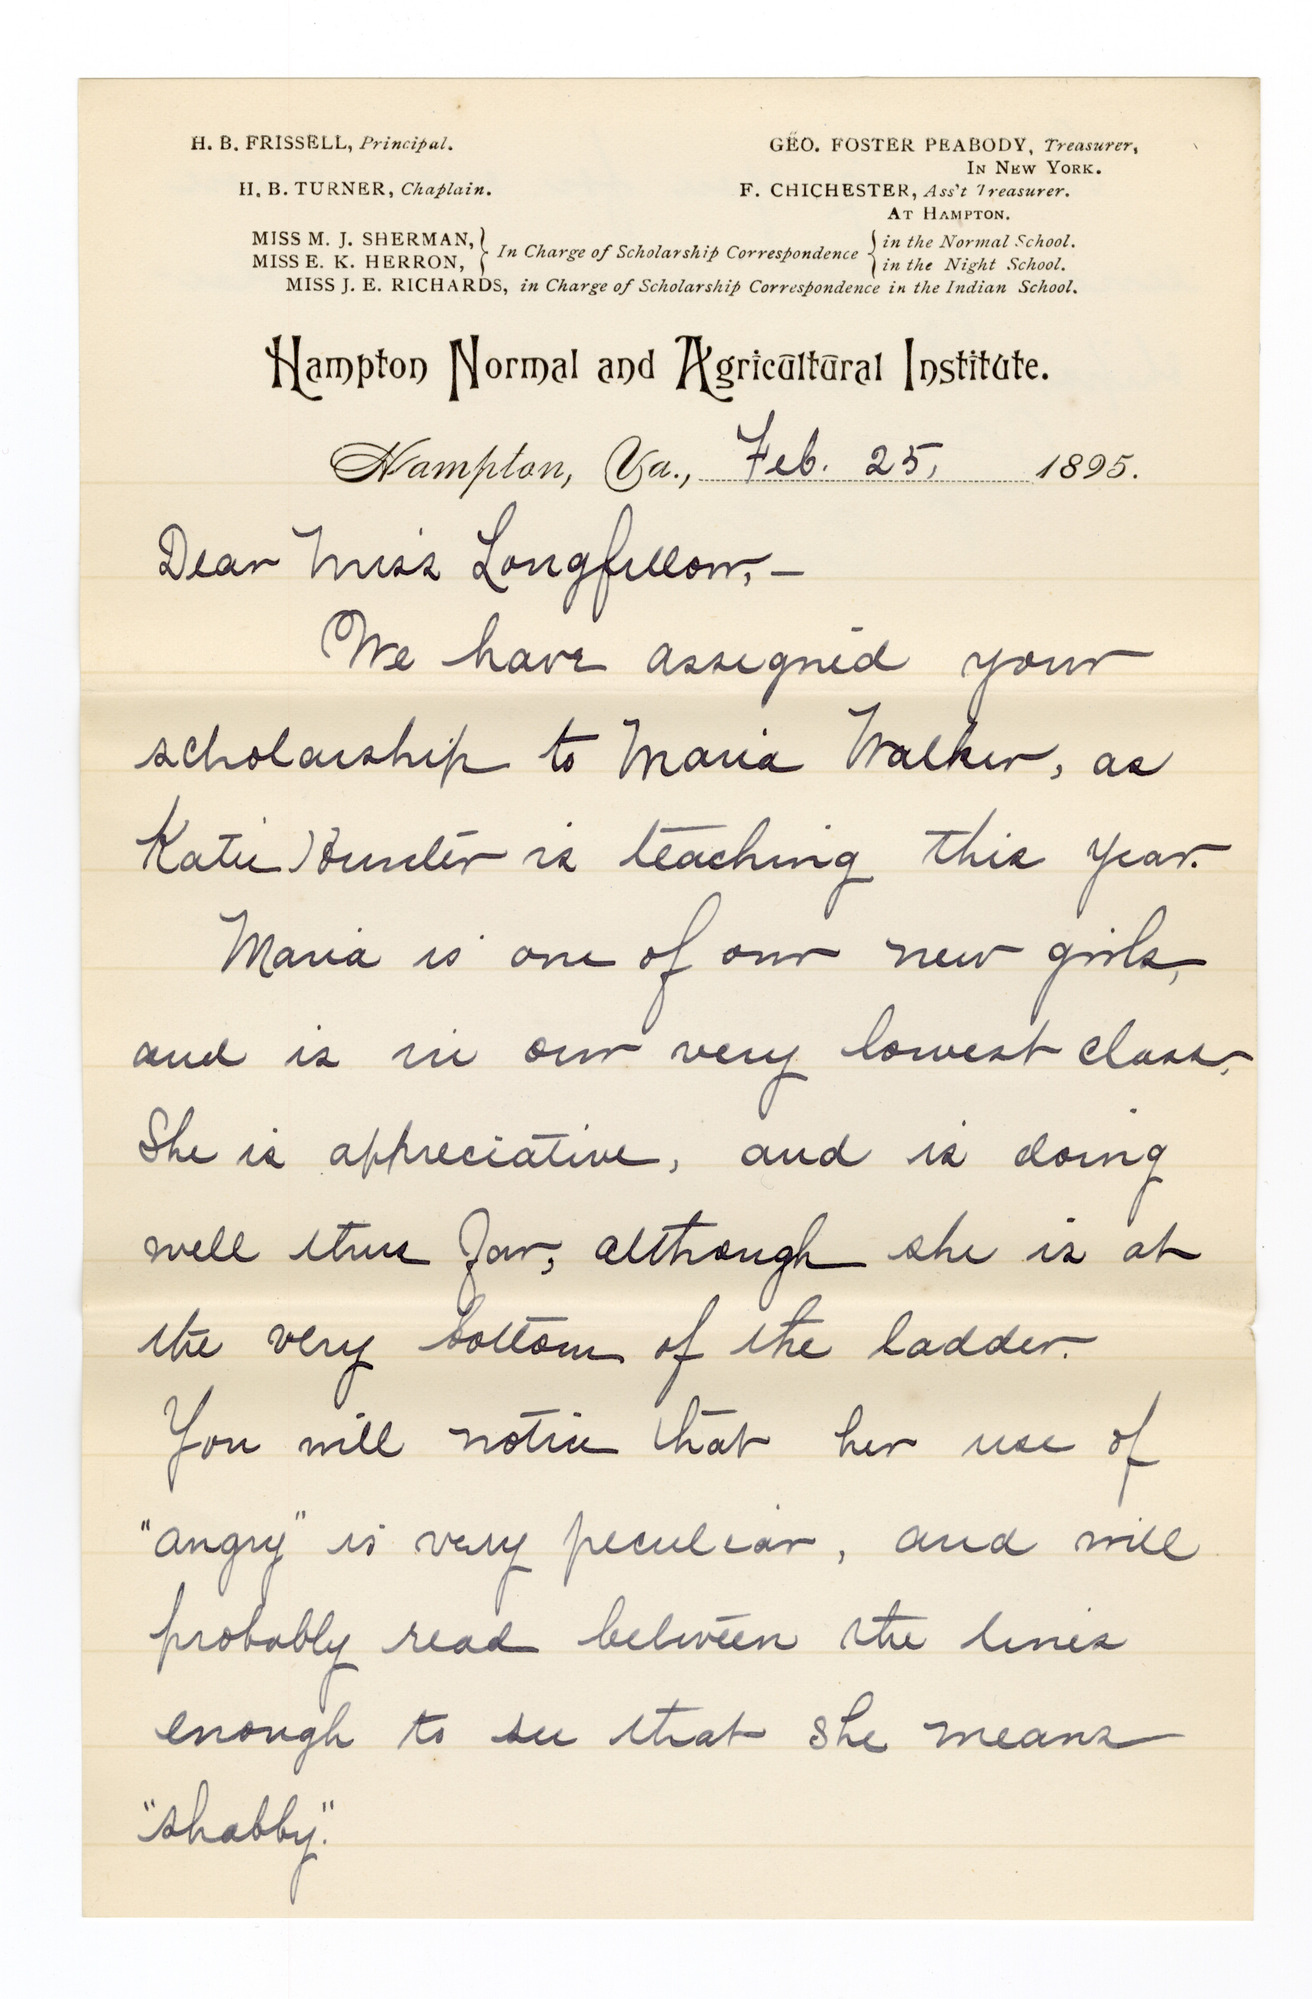 H. B. FRISSELL, Principal.
GEO. FOSTER PEABODY, Treasurer,
IN NEW YORK.
H. B. TURNER, Chaplain.
F. CHICHESTER, Ass't Treasurer.
AT HAMPTON.
MISS M. J. SHERMAN,
MISS E. K. HERRON,
In Charge of Scholarship Correspondence
in the Normal School.
in the Night School.
MISS J. E. RICHARDS, in Charge of Scholarship Correspondence in the Indian School.
Hampton Normal and Agricultural Institute.
Hampton, Va., Feb. 25, 1895.
Dear Miss Longfellow,—
We have assigned your
scholarship to Maria Walker, as
Katie Hunter is teaching this year.
Maria is one of our new girls,
and is in our very lowest class.
She is appreciative, and is doing
well thus far, although she is at
the very bottom of the ladder.
You will notice that her use of
"angry" is very peculiar, and will
probably read between the lines
enough to see that she means
"shabby".